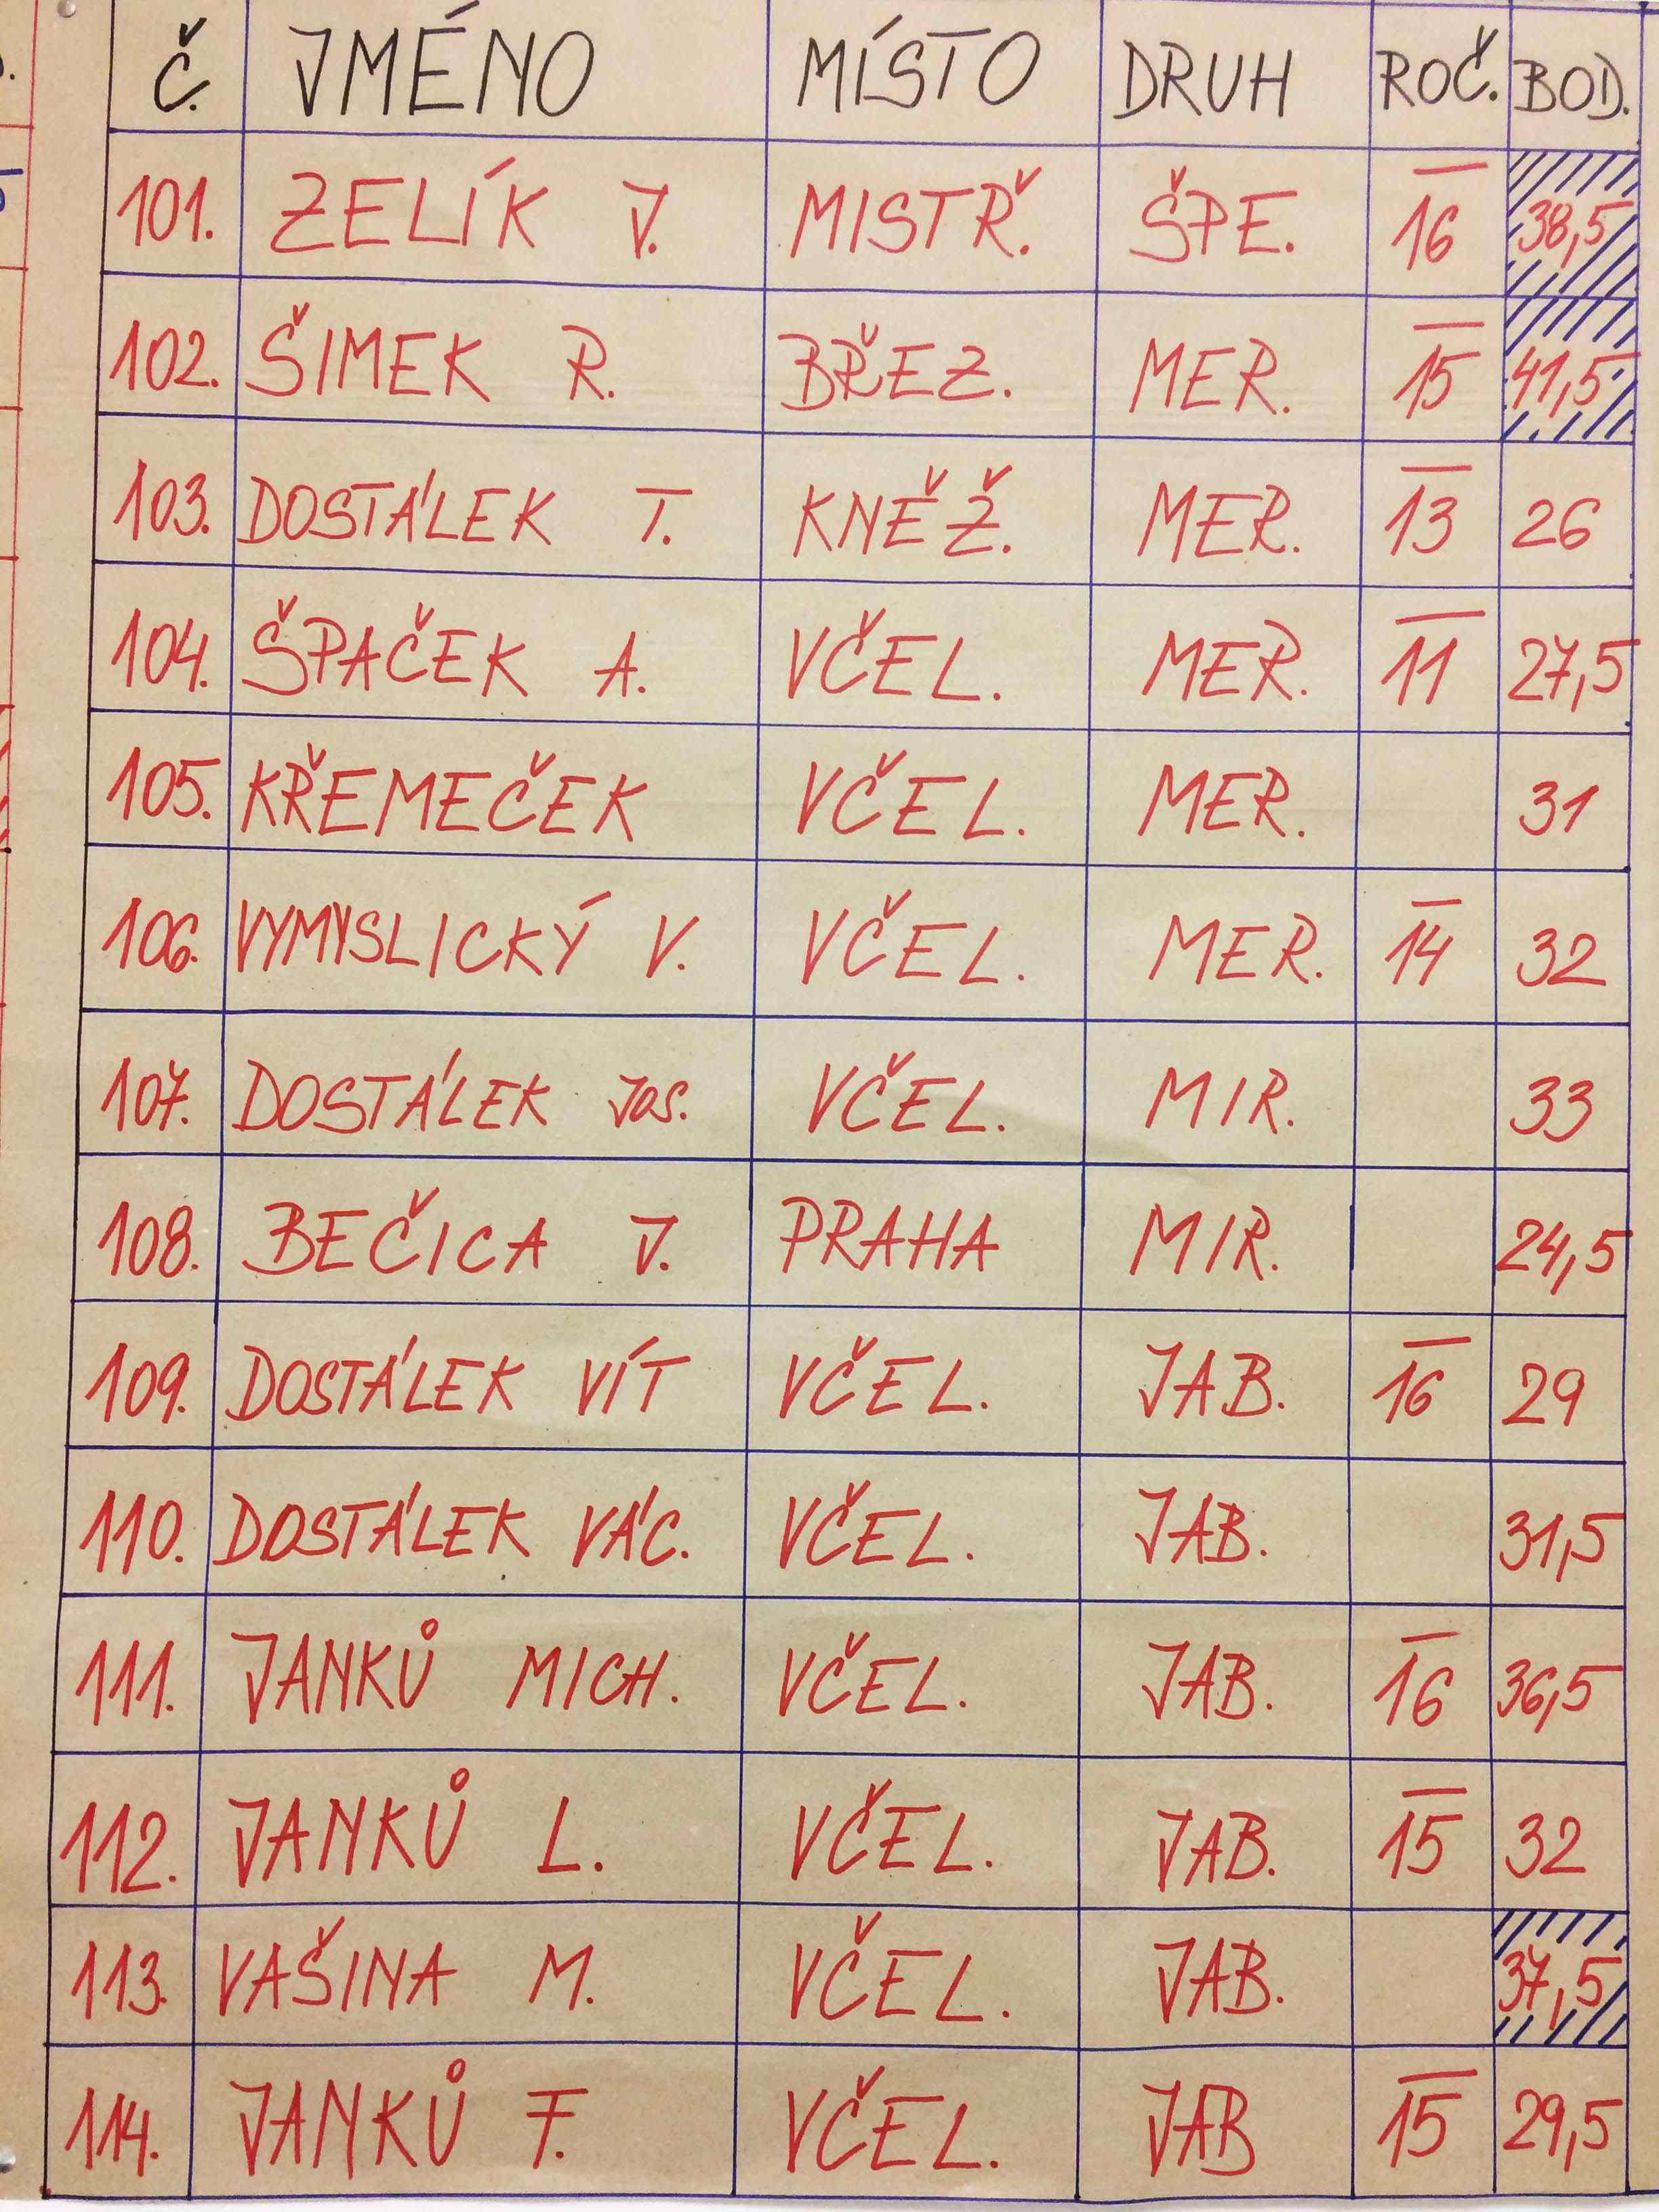 Č. JMÉNO MÍSTO DRUH ROČ. BOD.
101. ZELÍK J. MISTŘ. ŠPE. 16 38,5
102. ŠIMEK R. BŘEZ. MER. 15 41,5
103. DOSTÁLEK T. KNĚŽ. MER. 13 26
104. ŠPAČEK A. VČEL. MER. 11 27,5
105. KŘEMEČEK VČEL. MER. 31
106. VYMYSLICKÝ V. VČEL. MER. 14 32
107. DOSTÁLEK JOS. VČEL. MIR. 33
108. BEČICA J. PRAHA MIR. 24,5
109. DOSTÁLEK VÍT VČEL. JAB. 16 29
110. DOSTÁLEK VÁC. VČEL. JAB. 31,5
111. JANKŮ MICH. VČEL. JAB. 16 36,5
112. JANKŮ L. VČEL. JAB. 15 32
113. VAŠINA M. VČEL. JAB. 37,5
114. JANKŮ F. VČEL. JAB 15 29,5